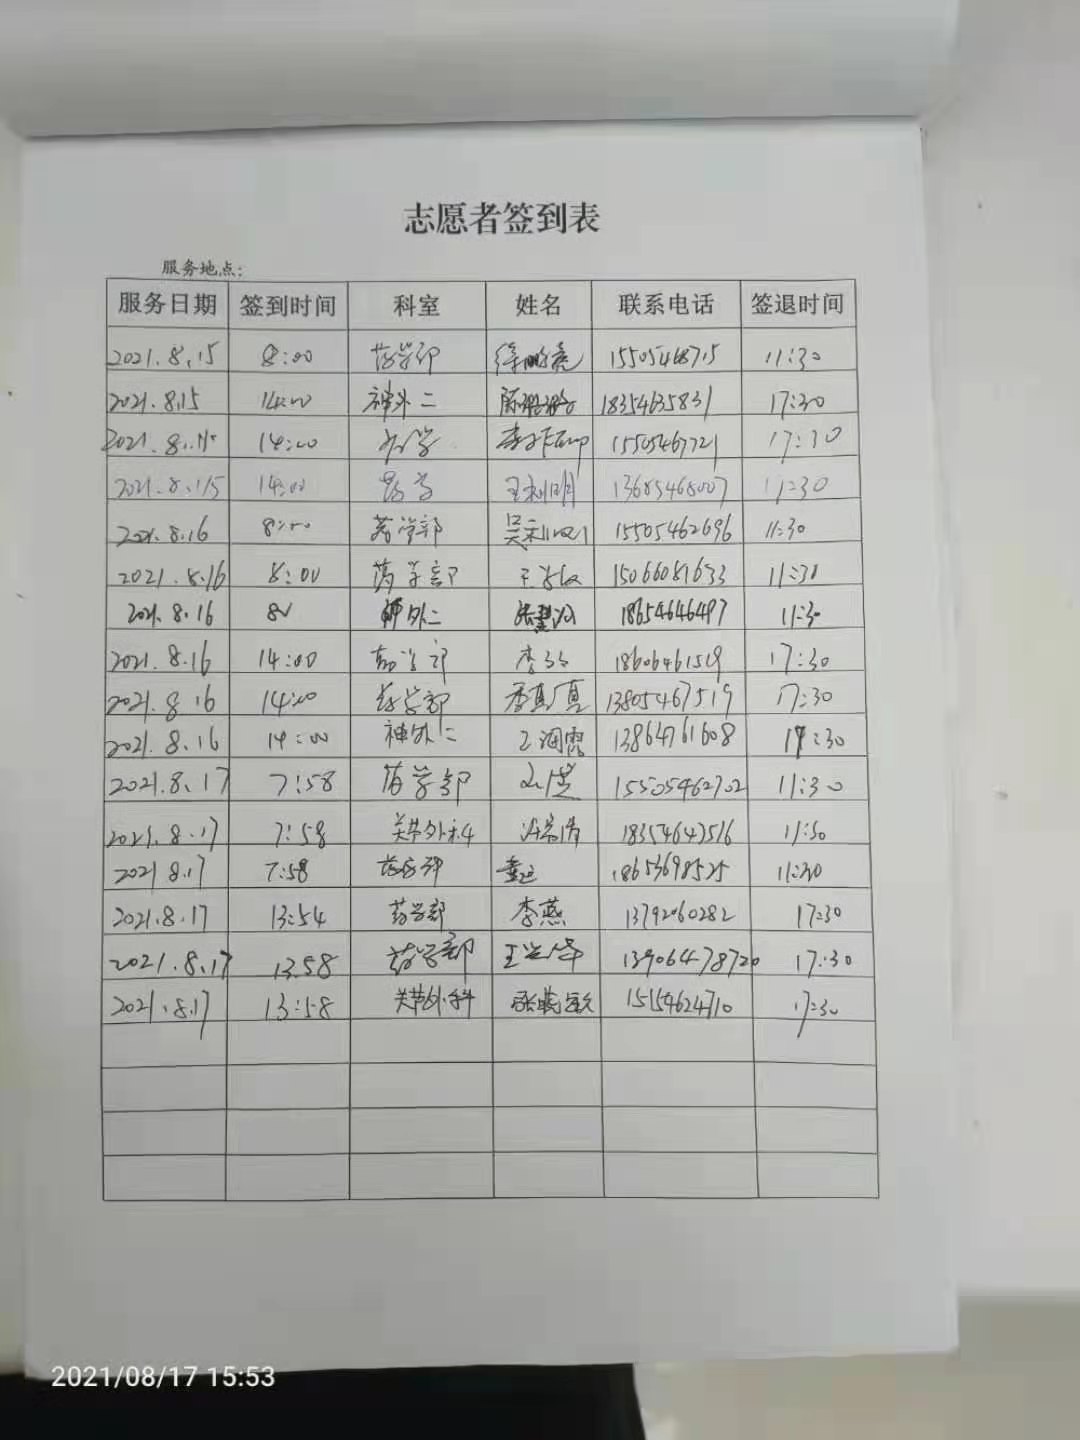 志愿者签到表
服务地点:
服务日期 签到时间 科室 姓名 联系电话 签退时间
2021.8.15 8:00 药学部 15505468715 11:30
2021.8.15 14:00 神外二 18354635831 17:30
2021.8.15 14:00 15505467721 17:30
2021.8.15 14:00 药学 王利明 13685468007 17:30
2021.8.16 8:00 药学部 15505462696 11:30
2021.8.16 8:00 药学部 15066081633 11:30
2021.8.16 神外二 18654646497 11:30
2021.8.16 14:00 药学部 18606461519 17:30
2021.8.16 14:00 药学部 季真真 13805467519 17:30
2021.8.16 14:00 神外二 王海霞 13864761608 17:30
2021.8.17 7:58 药学部 15505462702 11:30
2021.8.17 7:58 关节外科 18354643516 11:30
2021 8.17 7:58 药学部 18653698525 11:30
2021.8.17 13:54 药学部 李燕 13792060282 17:30
2021.8.17 13:58 药学部 王兰华 13906478720 17:30
2021.8.17 13:58 关节外科 15154624710 17:30
2021/08/17 15:53